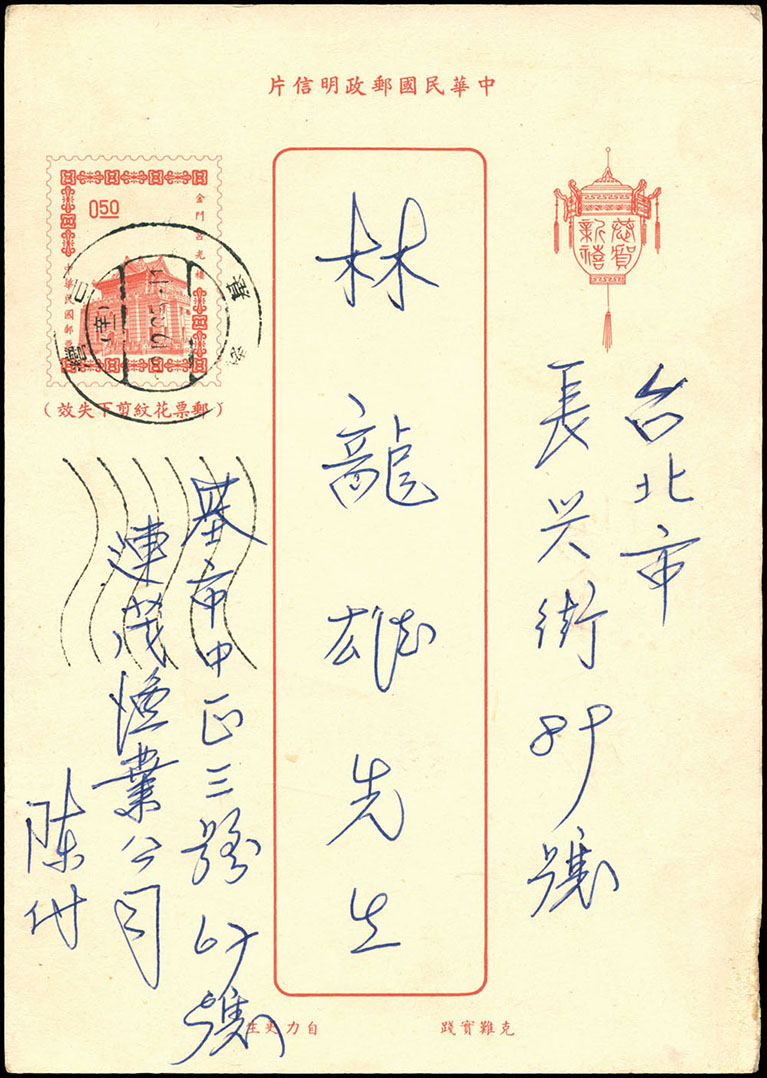 中華民國郵政明信片
恭賀
新禧
台北市
長兴街89號
林龍雄先生
0.50
金門莒光樓
中華民國郵票
(郵票花紋剪下失效)
基市中正三路67號
連茂漁業公司
陳付
克難實踐
自力更生